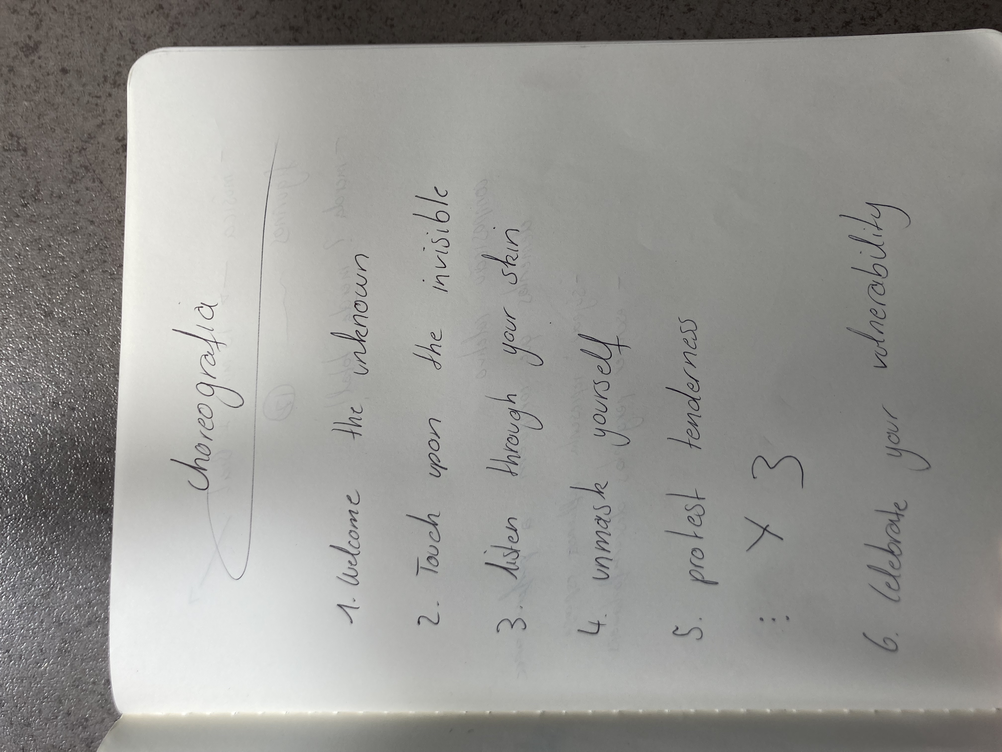 choreografia
1. Welcome the unknown
2. Touch upon the invisible
3. listen through your skin
4. unmask yourself
5. protest tenderness
⋮ x 3
6. Celebrate your vulnerability